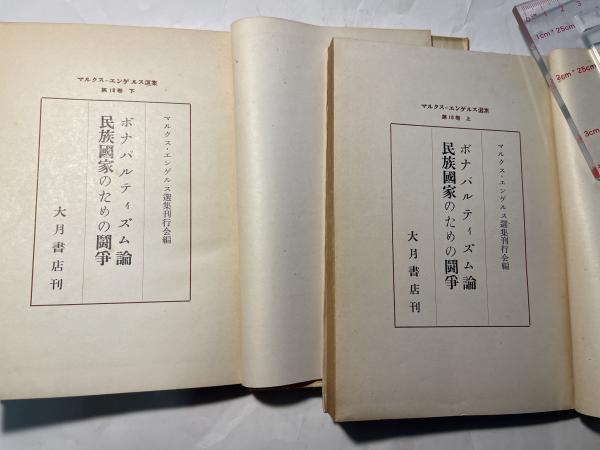 マルクス=エンゲルス選集
第10巻 下
マルクス・エンゲルス選集刊行会編
ボナパルティズム論
民族國家のための闘爭
大月書店刊
マルクス=エンゲルス選集
第10巻 上
マルクス・エンゲルス選集刊行会編
ボナパルティズム論
民族國家のための闘爭
大月書店刊
1cm* 25cm
2cm* 25cm
3cm